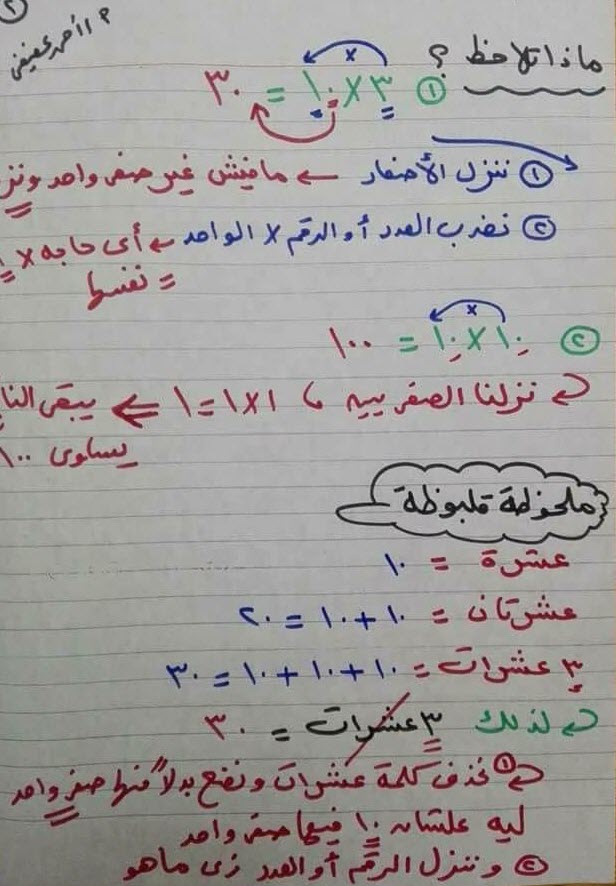 ٢
م / أحمد عفيفي
ماذا تلاحظ ؟
① ٣ × ١٠ = ٣٠
① ننزل الأصفار ← مافيش غير صفر واحد
② نضرب العدد أو الرقم × الواحد ← أى حاجه ×
= نفسها
② ١٠ × ١٠ = ١٠٠
نزلنا الصفريين ، ١×١=١ ⇐ يبقى
يساوى ١٠٠
ملحوظة قلبوظة
عشرة = ١٠
عشرتان = ١٠ + ١٠ = ٢٠
٣ عشرات = ١٠ + ١٠ + ١٠ = ٣٠
لذلك ٣ عشرات = ٣٠
① نحذف كلمة عشرات ونضع بدلاً منها صفر واحد
ليه علشان ١٠ فيها صفر واحد
② وننزل الرقم أو العدد زى ماهو